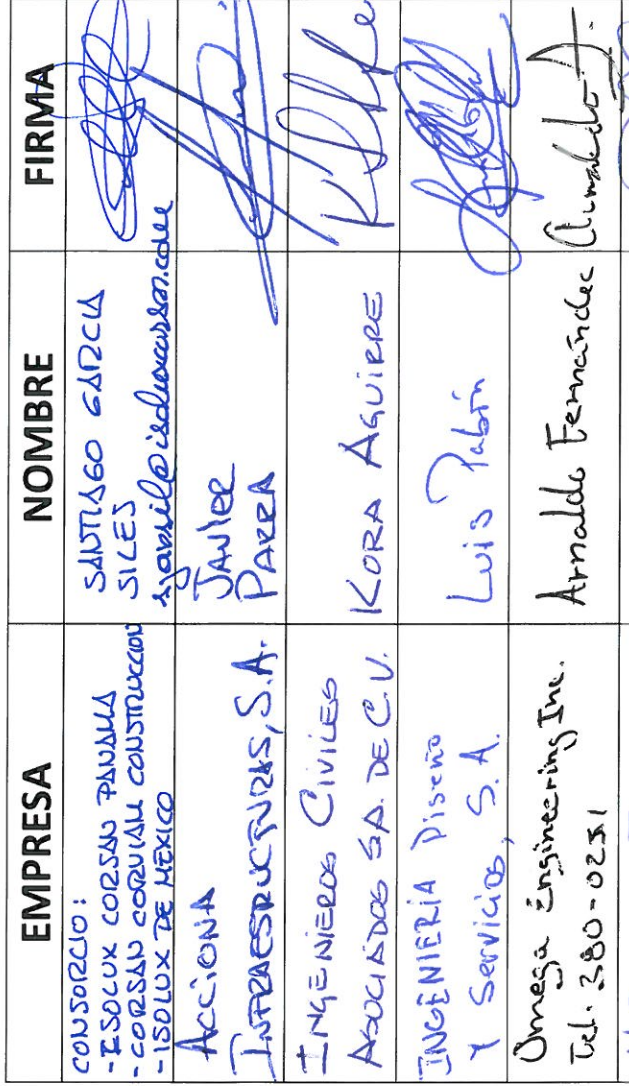 EMPRESA NOMBRE FIRMA
CONSORCIO:
- ISOLUX CORSAN PANAMA
- CORSAN CORVIAM CONSTRUCCION
- ISOLUX DE MEXICO
SANTIAGO GARCIA
SILES
ACCIONA
INFRAESTRUCTURAS, S.A.
JAVIER
PARRA
INGENIEROS CIVILES
ASOCIADOS SA. DE C.V.
KORA AGUIRRE
INGENIERIA Diseño
Y Servicios, S.A.
Luis Pabón
Omega Engineering Inc.
Tel. 380-0251
Arnaldo Fernández
Arnaldo F.